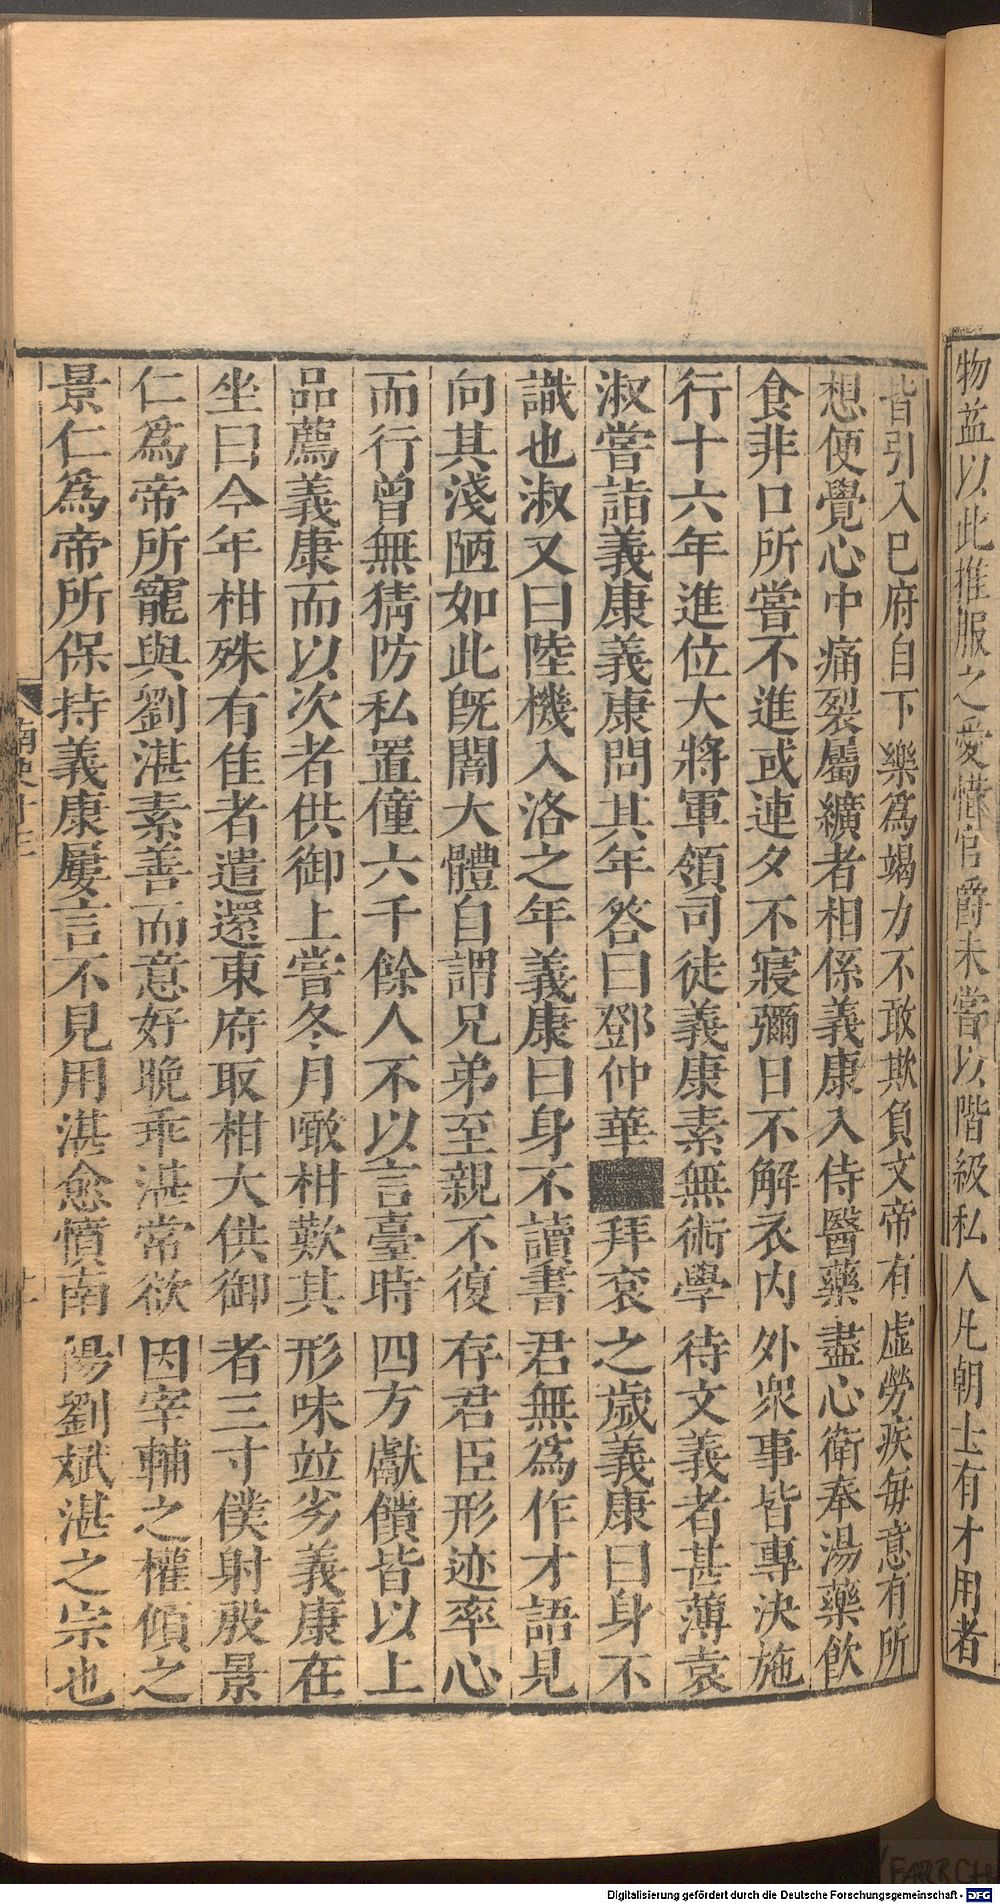 物益以此推服之愛惜官爵未嘗以階級私人凡朝士有才用者
皆引入已府自下樂為竭力不敢欺負文帝有虛勞疾每意有所
想便覺心中痛裂屬纊者相係義康入侍醫藥盡心衛奉湯藥飲
食非口所嘗不進或連夕不寢彌日不解衣內外衆事皆專決施
行十六年進位大將軍領司徒義康素無術學待文義者甚薄袁
淑嘗詣義康義康問其年答曰鄧仲華拜衮之歲義康曰身不
識也淑又曰陸機入洛之年義康曰身不讀書君無爲作才語見
向其淺陋如此旣闇大體自謂兄弟至親不復存君臣形迹率心
而行曾無猜防私置僮六千餘人不以言臺時四方獻饋皆以上
品薦義康而以次者供御上嘗冬月噉柑歎其形味竝劣義康在
坐曰今年柑殊有佳者遣還東府取柑大供御者三寸僕射殷景
仁爲帝所寵與劉湛素善而意好晚乖湛常欲因宰輔之權傾之
景仁爲帝所保持義康屢言不見用湛愈憤南陽劉斌湛之宗也
南史十三
十一
Digitalisierung gefördert durch die Deutsche Forschungsgemeinschaft - DFG